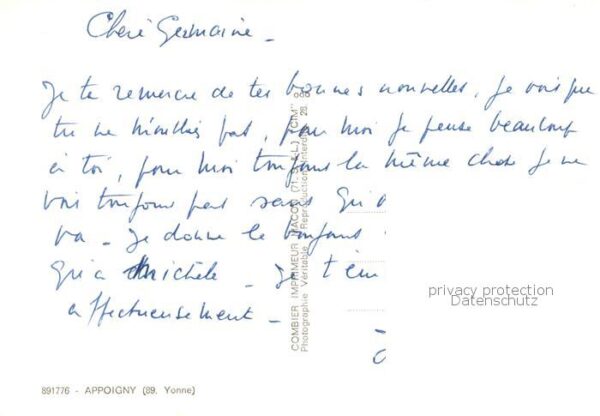 Chère Germaine -
Je te remercie de tes bonnes nouvelles, je vois que
tu ne m'oublies pas, pour moi je pense beaucoup
à toi, pour moi toujours la même chose je ne
vois toujours pas sans qui
va - je donne le bonjour
qu'a Michèle - Je t'em
affectueusement -
COMBIER IMPRIMEUR MACON (71. S.-&-L.) "CIM"
Photographie Véritable - Reproduction interdite
privacy protection
Datenschutz
891776 - APPOIGNY (89. Yonne)